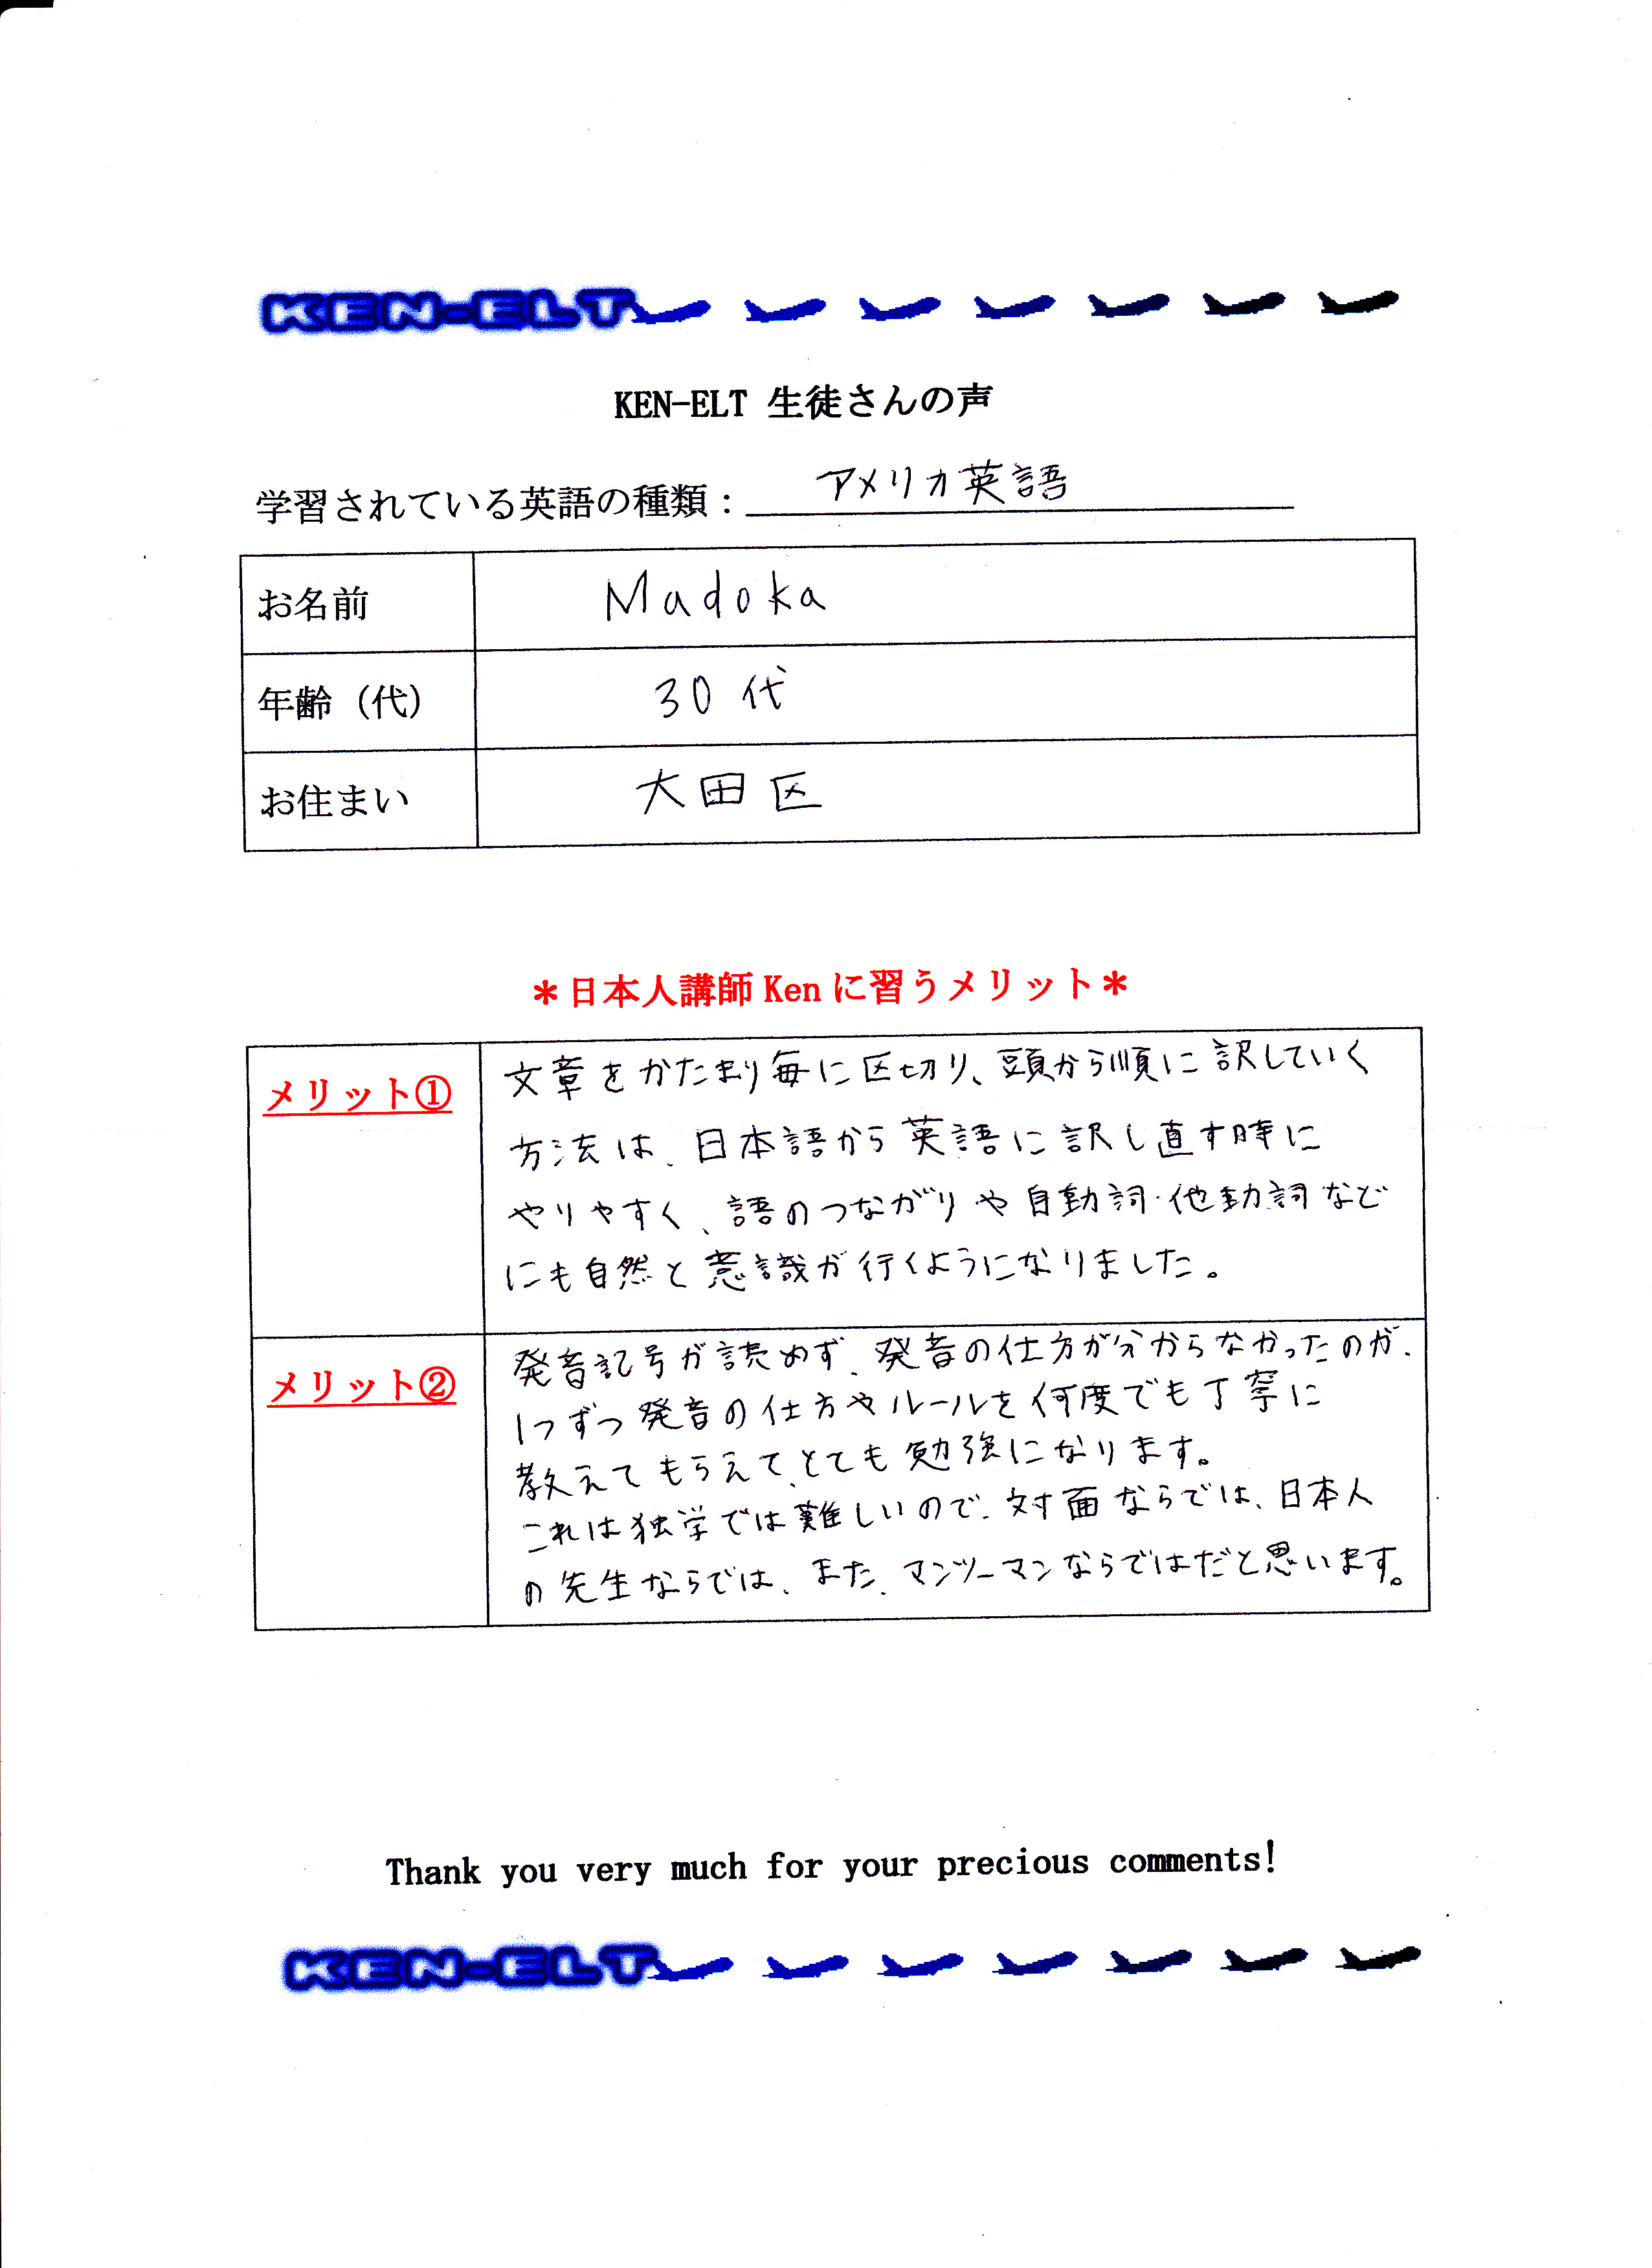 KEN-ELT
KEN-ELT 生徒さんの声
学習されている英語の種類：アメリカ英語
お名前 Madoka
年齢（代） 30代
お住まい 大田区
＊日本人講師Kenに習うメリット＊
メリット① 文章をかたまり毎に区切り、頭から順に訳していく
方法は、日本語から英語に訳し直す時に
やりやすく、語のつながりや自動詞・他動詞など
にも自然と意識が行くようになりました。
メリット② 発音記号が読めず、発音の仕方が分からなかったのが、
1つずつ発音の仕方やルールを何度でも丁寧に
教えてもらえて、とても勉強になります。
これは独学では難しいので、対面ならでは、日本人
の先生ならでは、また、マンツーマンならではだと思います。
Thank you very much for your precious comments!
KEN-ELT